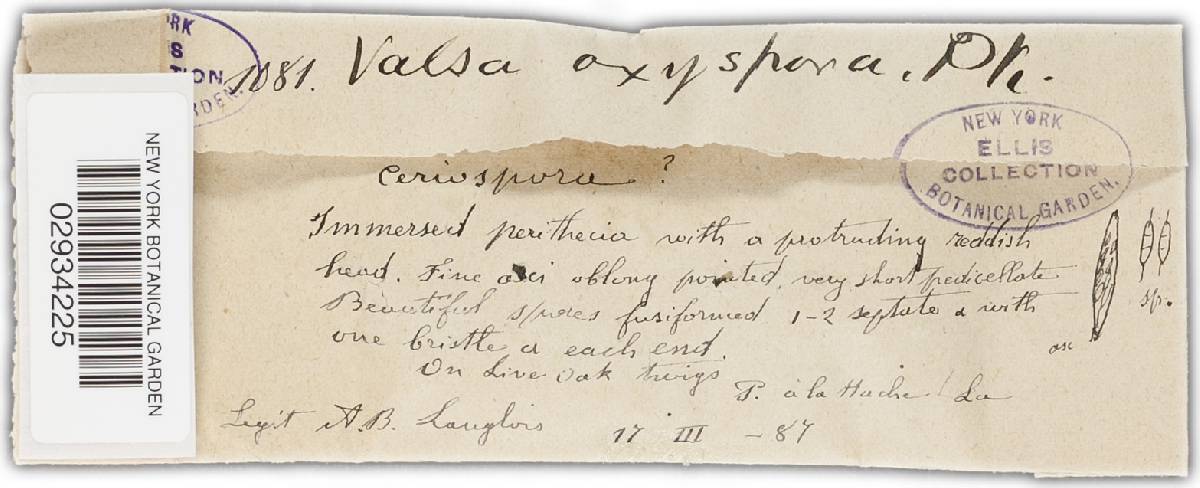 1081. Valsa oxyspora, Pk.
NEW YORK
ELLIS
COLLECTION
BOTANICAL GARDEN.
ceriospora ?
Immersed perithecia with a protruding reddish
head. Fine asci oblong pointed, very short pedicellate
Beautiful spores fusiformed 1-2 septate & with
one bristle a each end.
On Live Oak twigs
P. à la Hache La
Legit A.B. Langlois 17 III - 87
asc
sp.
RK
IS
ION
RDEN.
NEW YORK BOTANICAL GARDEN
02934225